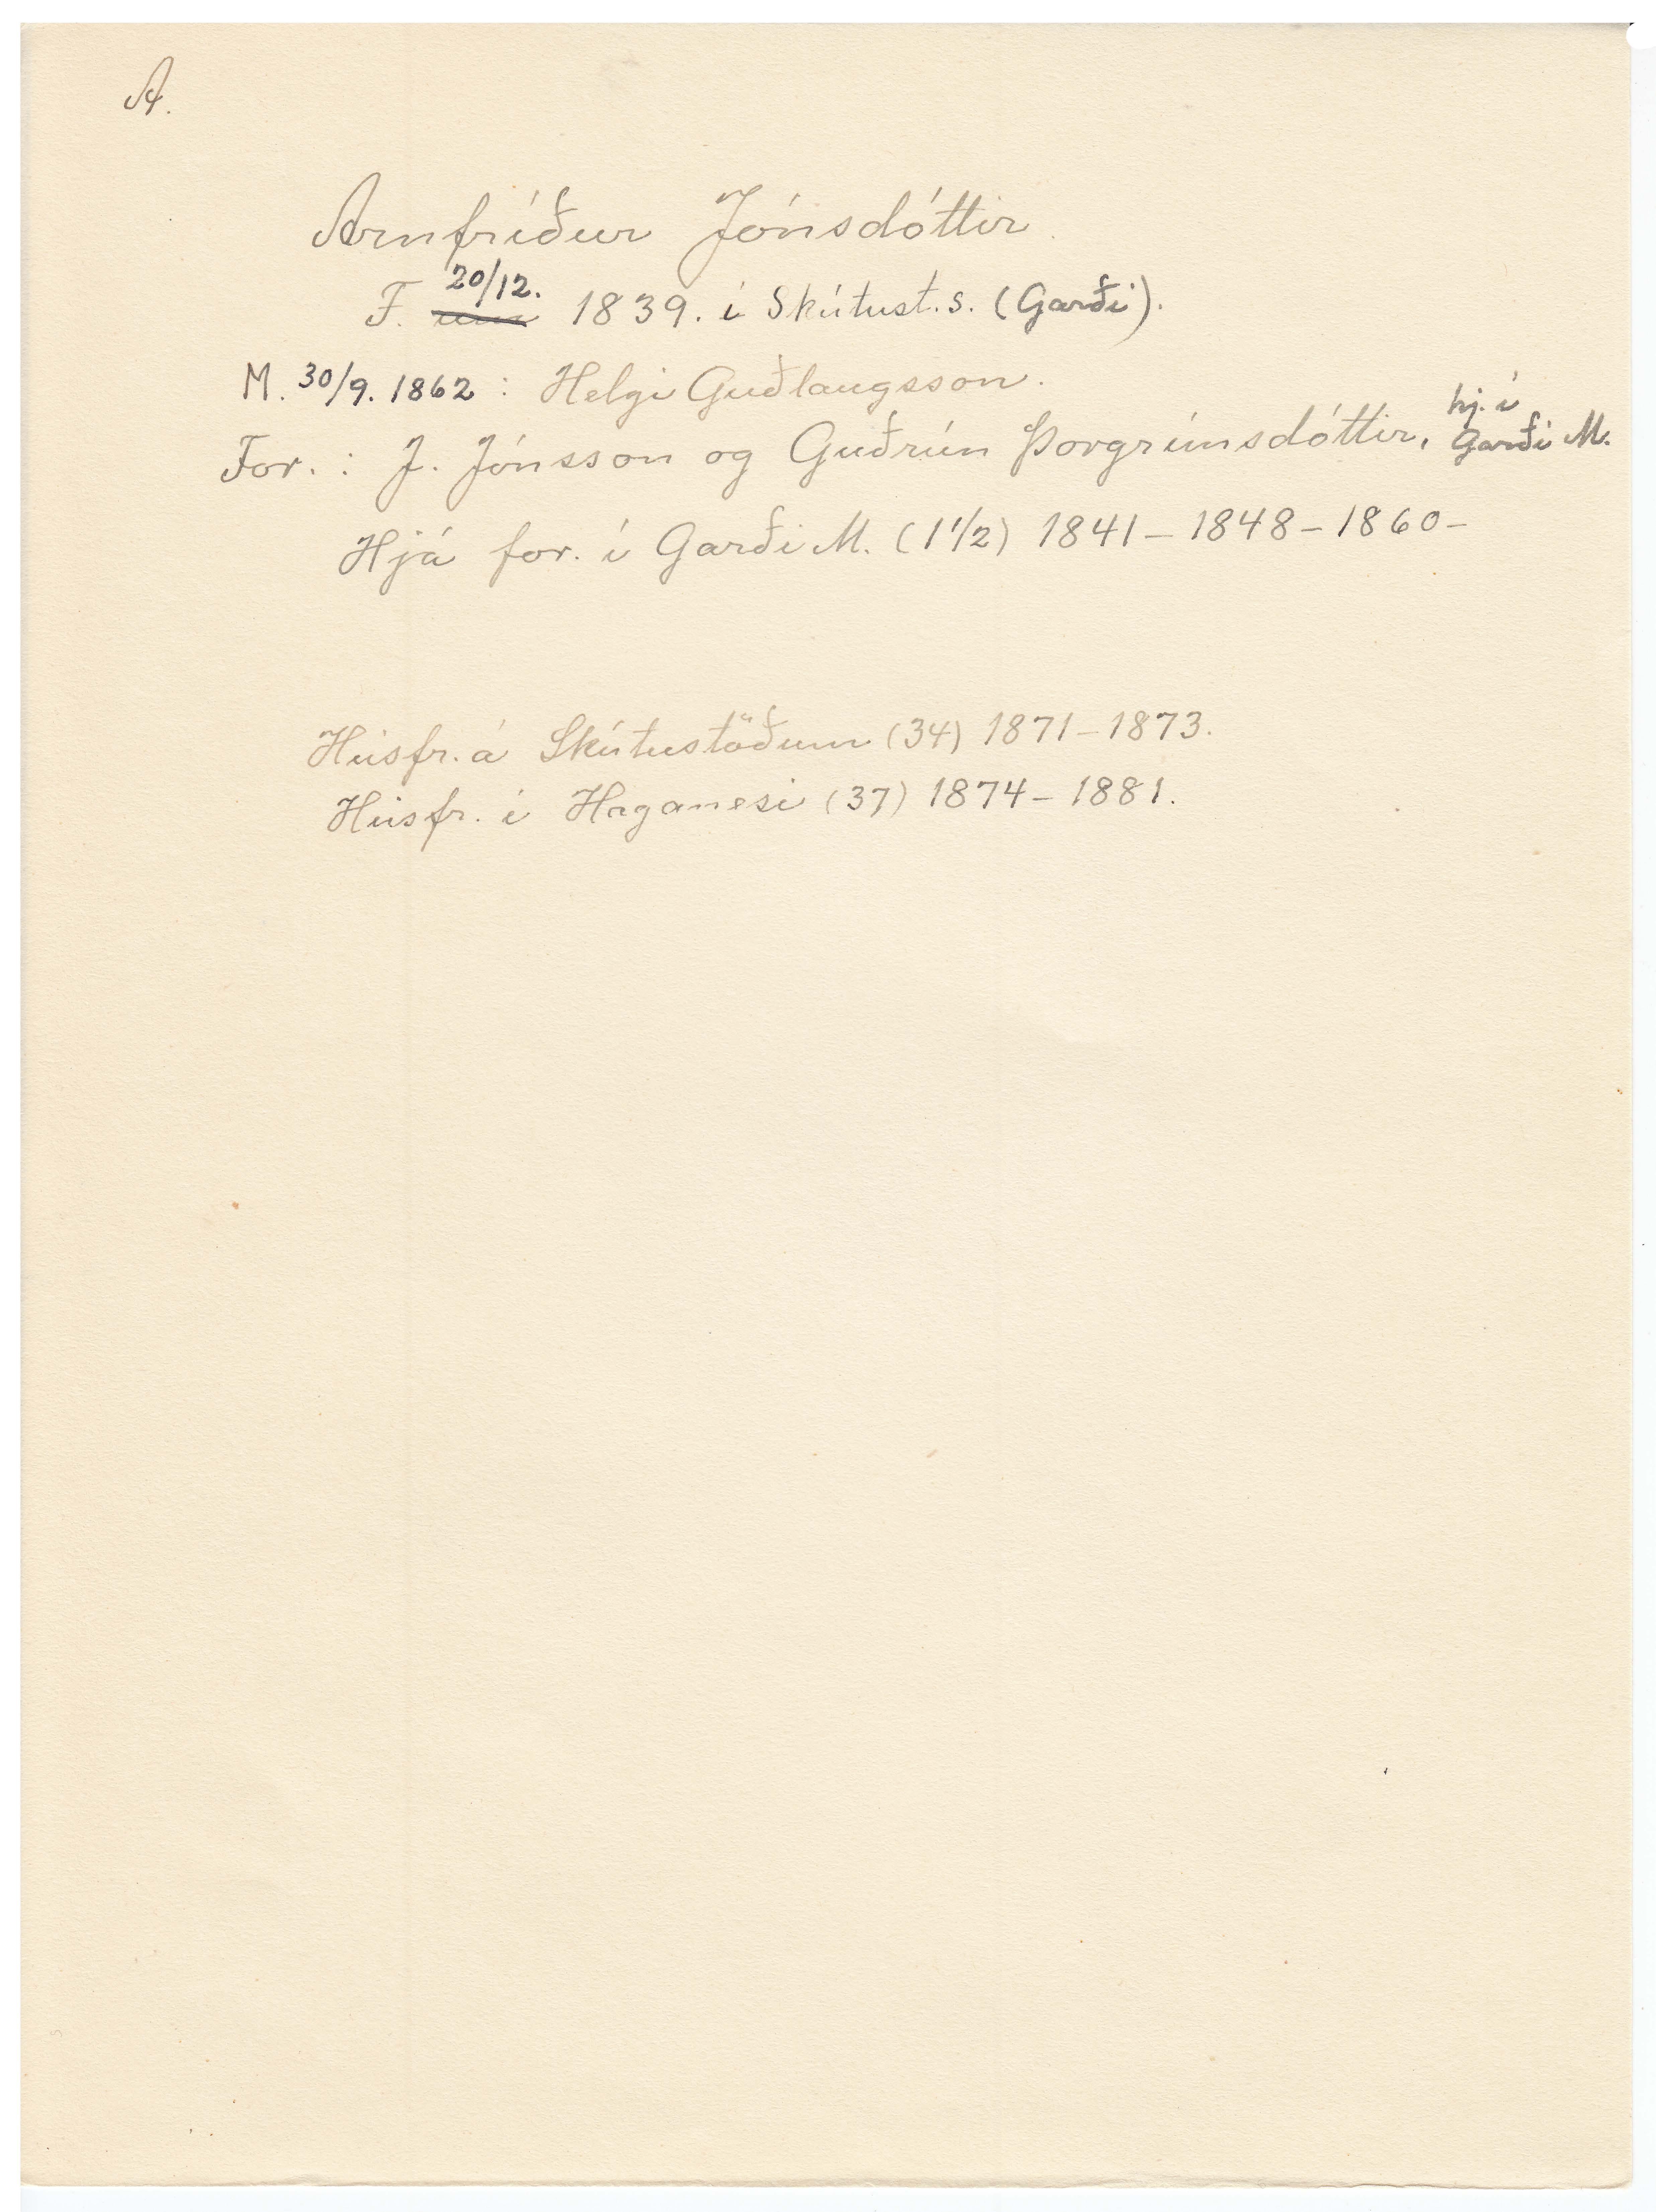 A.
Arnfríður Jónsdóttir.
20/12.
F. 1839. í Skútust.s. (Garði).
M. 30/9. 1862 : Helgi Guðlaugsson.
hj. í
For. : J. Jónsson og Guðrún Þorgrímsdóttir, Garði M.
Hjá for. í Garði M. (1 1/2) 1841 – 1848 – 1860 –
Húsfr. á Skútustöðum (34) 1871 – 1873.
Húsfr. í Haganesi (37) 1874 – 1881.